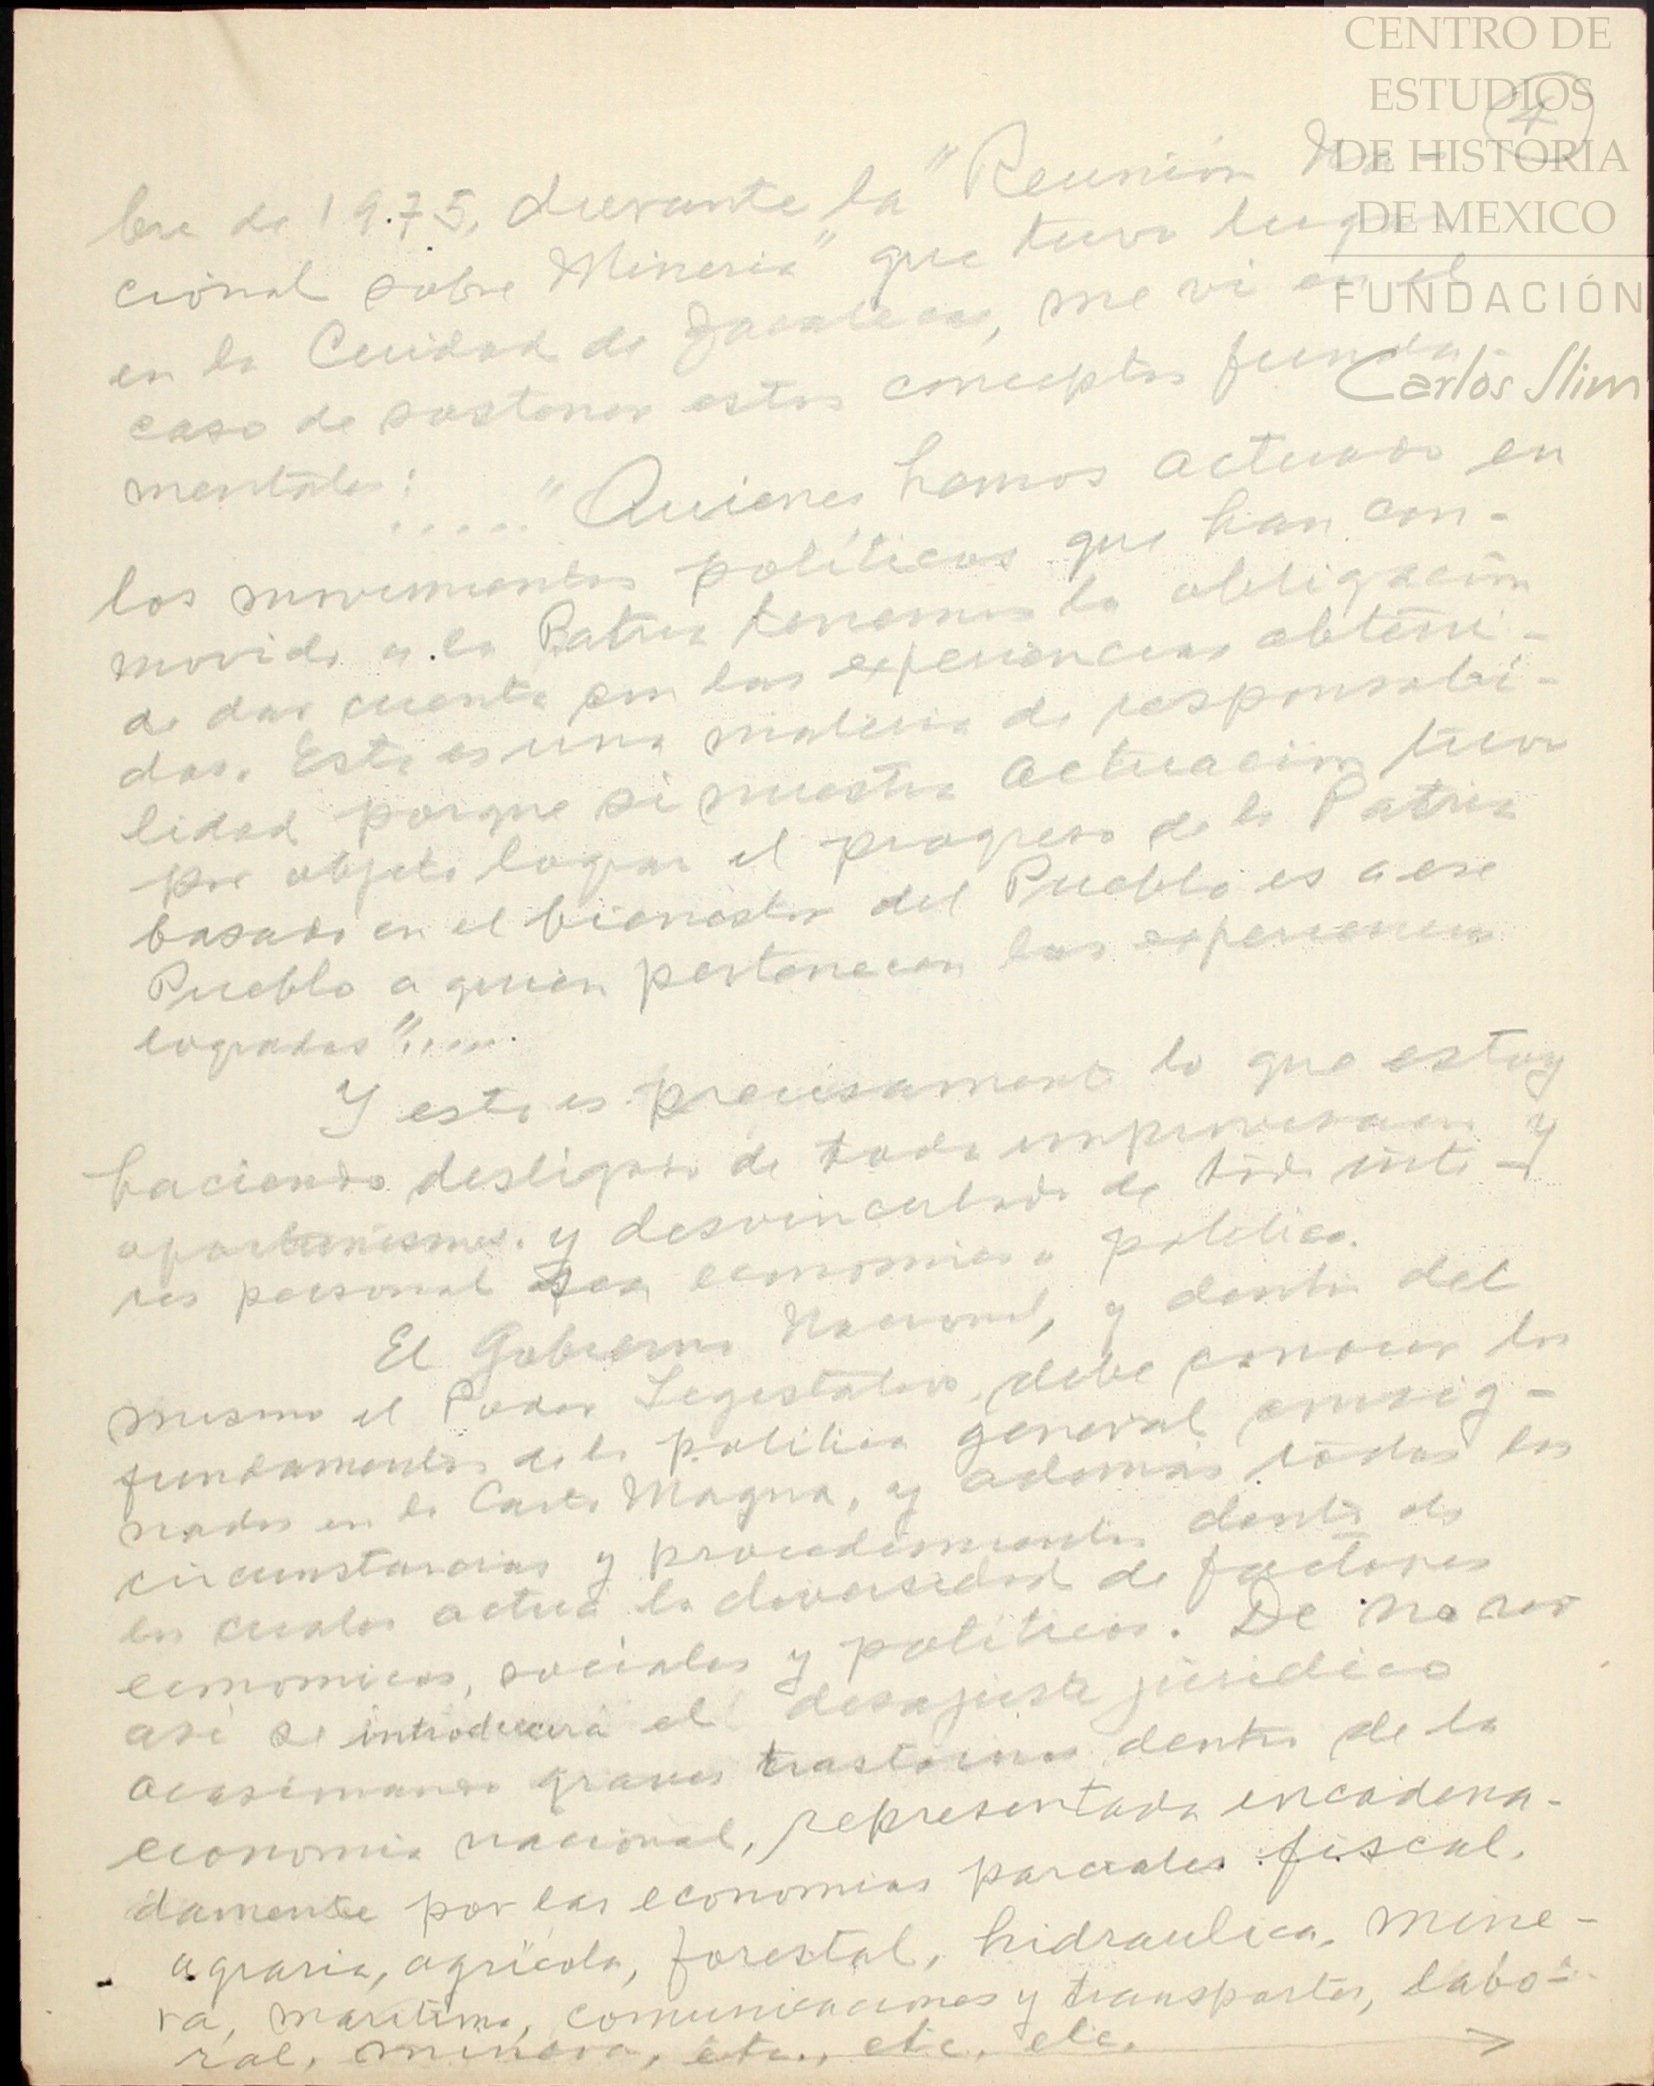 CENTRO DE
ESTUDIOS
DE HISTORIA
DE MEXICO
FUNDACIÓN
Carlos Slim
4
bre de 1975, durante la "Reunión Na-
cional sobre Mineria" que tuvo lugar
en la Ciudad de Zacatecas, me vi en el
caso de sostener estos conceptos funda-
mentales:
....."Quienes hemos actuado en
los movimientos políticos que han con-
movido a la Patria tenemos la obligación
de dar cuenta con las experiencias obteni-
das. Esto es una materia de responsabi-
lidad porque si nuestra actuacion tuvo
por objeto lograr el progreso de la Patria
basado en el bienestar del Pueblo es a ese
Pueblo a quien pertenecen las experiencias
logradas".....
Y esto es precisamente lo que estoy
haciendo desligado de toda improvisacion y
oportunismos. y desvinculado de todo inte-
res personal sea economico o politico.
El Gobierno Nacional, y dentro del
mismo el Poder Legislativo, debe conocer los
fundamentos de la politica general consig-
nados en la Carta Magna, y además todas las
circunstancias y procedimientos dentro de
los cuales actua la diversidad de factores
economicos, sociales y politicos. De no ser
asi se introducirá el desajuste jurídico
ocasionando graves trastornos dentro de la
economia nacional, representada encadena-
damente por las economias parciales: fiscal,
agraria, agrícola, forestal, hidraulica, mine-
ra, maritima, comunicaciones y transportes, labo-
ral, minera, etc., etc, etc.